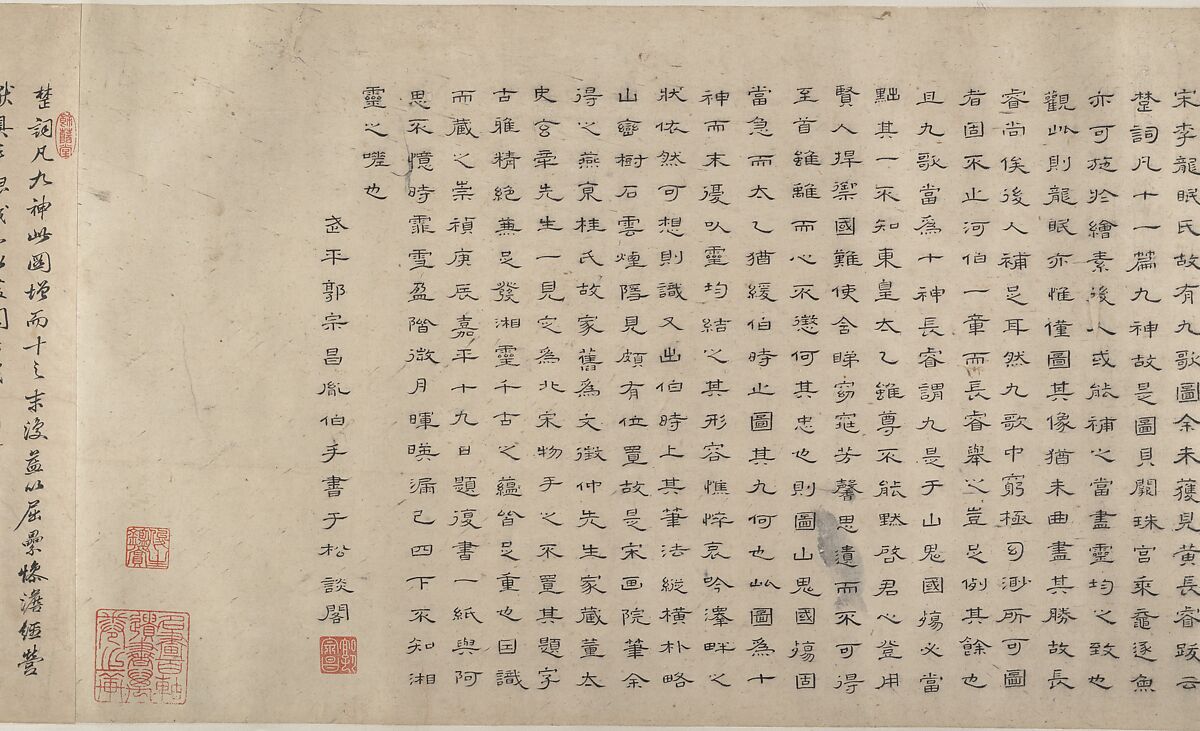 宋李龍眠氏故有九歌圖余未獲見黃長睿跋云
楚詞凡十一篇九神故是圖貝闕珠宮乘黿逐魚
亦可施於繪素後人或能補之當盡靈均之致也
觀此則龍眠亦惟僅圖其像猶未曲盡其勝故長
睿尚俟後人補足耳然九歌中窮極幻渺所可圖
者固不止河伯一章而長睿舉之豈足例其餘也
且九歌當為十神長睿謂九是于山鬼國殤必當
黜其一不知東皇太乙雖尊不能黙啓君心登用
賢人捍禦國難使舍睇窈窕芳馨思遺而不可得
至首雖離而心不懲何其忠也則圖山鬼國殤固
當急而太乙猶緩伯時止圖其九何也此圖為十
神而末復以靈均結之其形容憔悴哀吟澤畔之
狀依然可想則識又出伯時上其筆法縱橫朴略
山巒樹石雲煙隱見頗有位置故是宋画院筆余
得之燕京桂氏故家舊為文徵仲先生家藏董太
史玄宰先生一見定為北宋物手之不置其題字
古雅精絕兼足發湘靈千古之蘊皆足重也因識
而藏之崇禎庚辰嘉平十九日題復書一紙與阿
思不憶時霏雪盈階微月暉暎漏已四下不知湘
靈之嗟也
武平郭宗昌胤伯手書于松談閣
郭宗昌
楚詞凡九神此圖增而十之末復益以屈纍慘澹經營